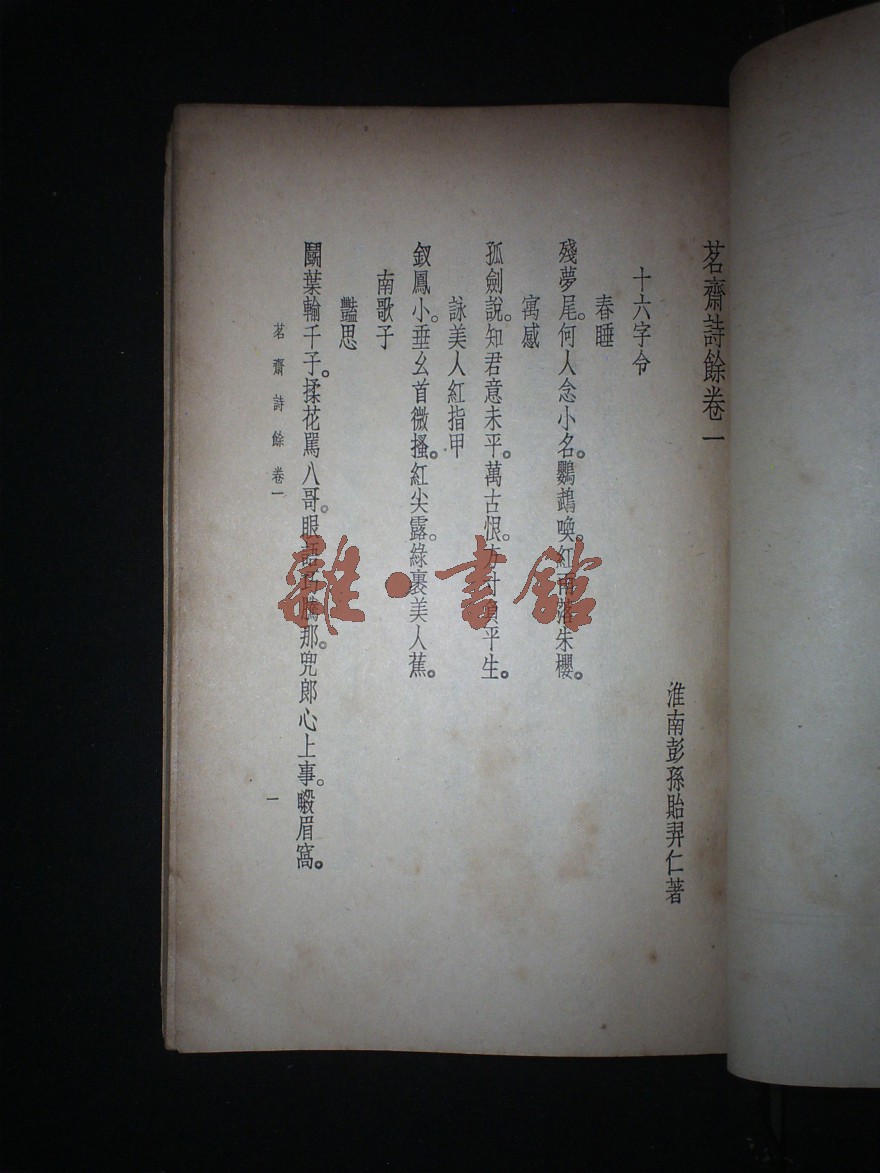 茗齋詩餘卷一
淮南彭孫貽羿仁著
十六字令
春睡
殘夢尾。何人念小名。鸚鵡喚。紅雨落朱櫻。
寓感
孤劍說。知君意未平。萬古恨。方寸負平生。
詠美人紅指甲
釵鳳小。垂幺首微搔。紅尖露。綠裹美人蕉。
南歌子
豔思
鬭葉輸千子。揉花罵八哥。眼語騰那。兜郎心上事。眉窩。
茗齋詩餘卷一
一
雜·書館